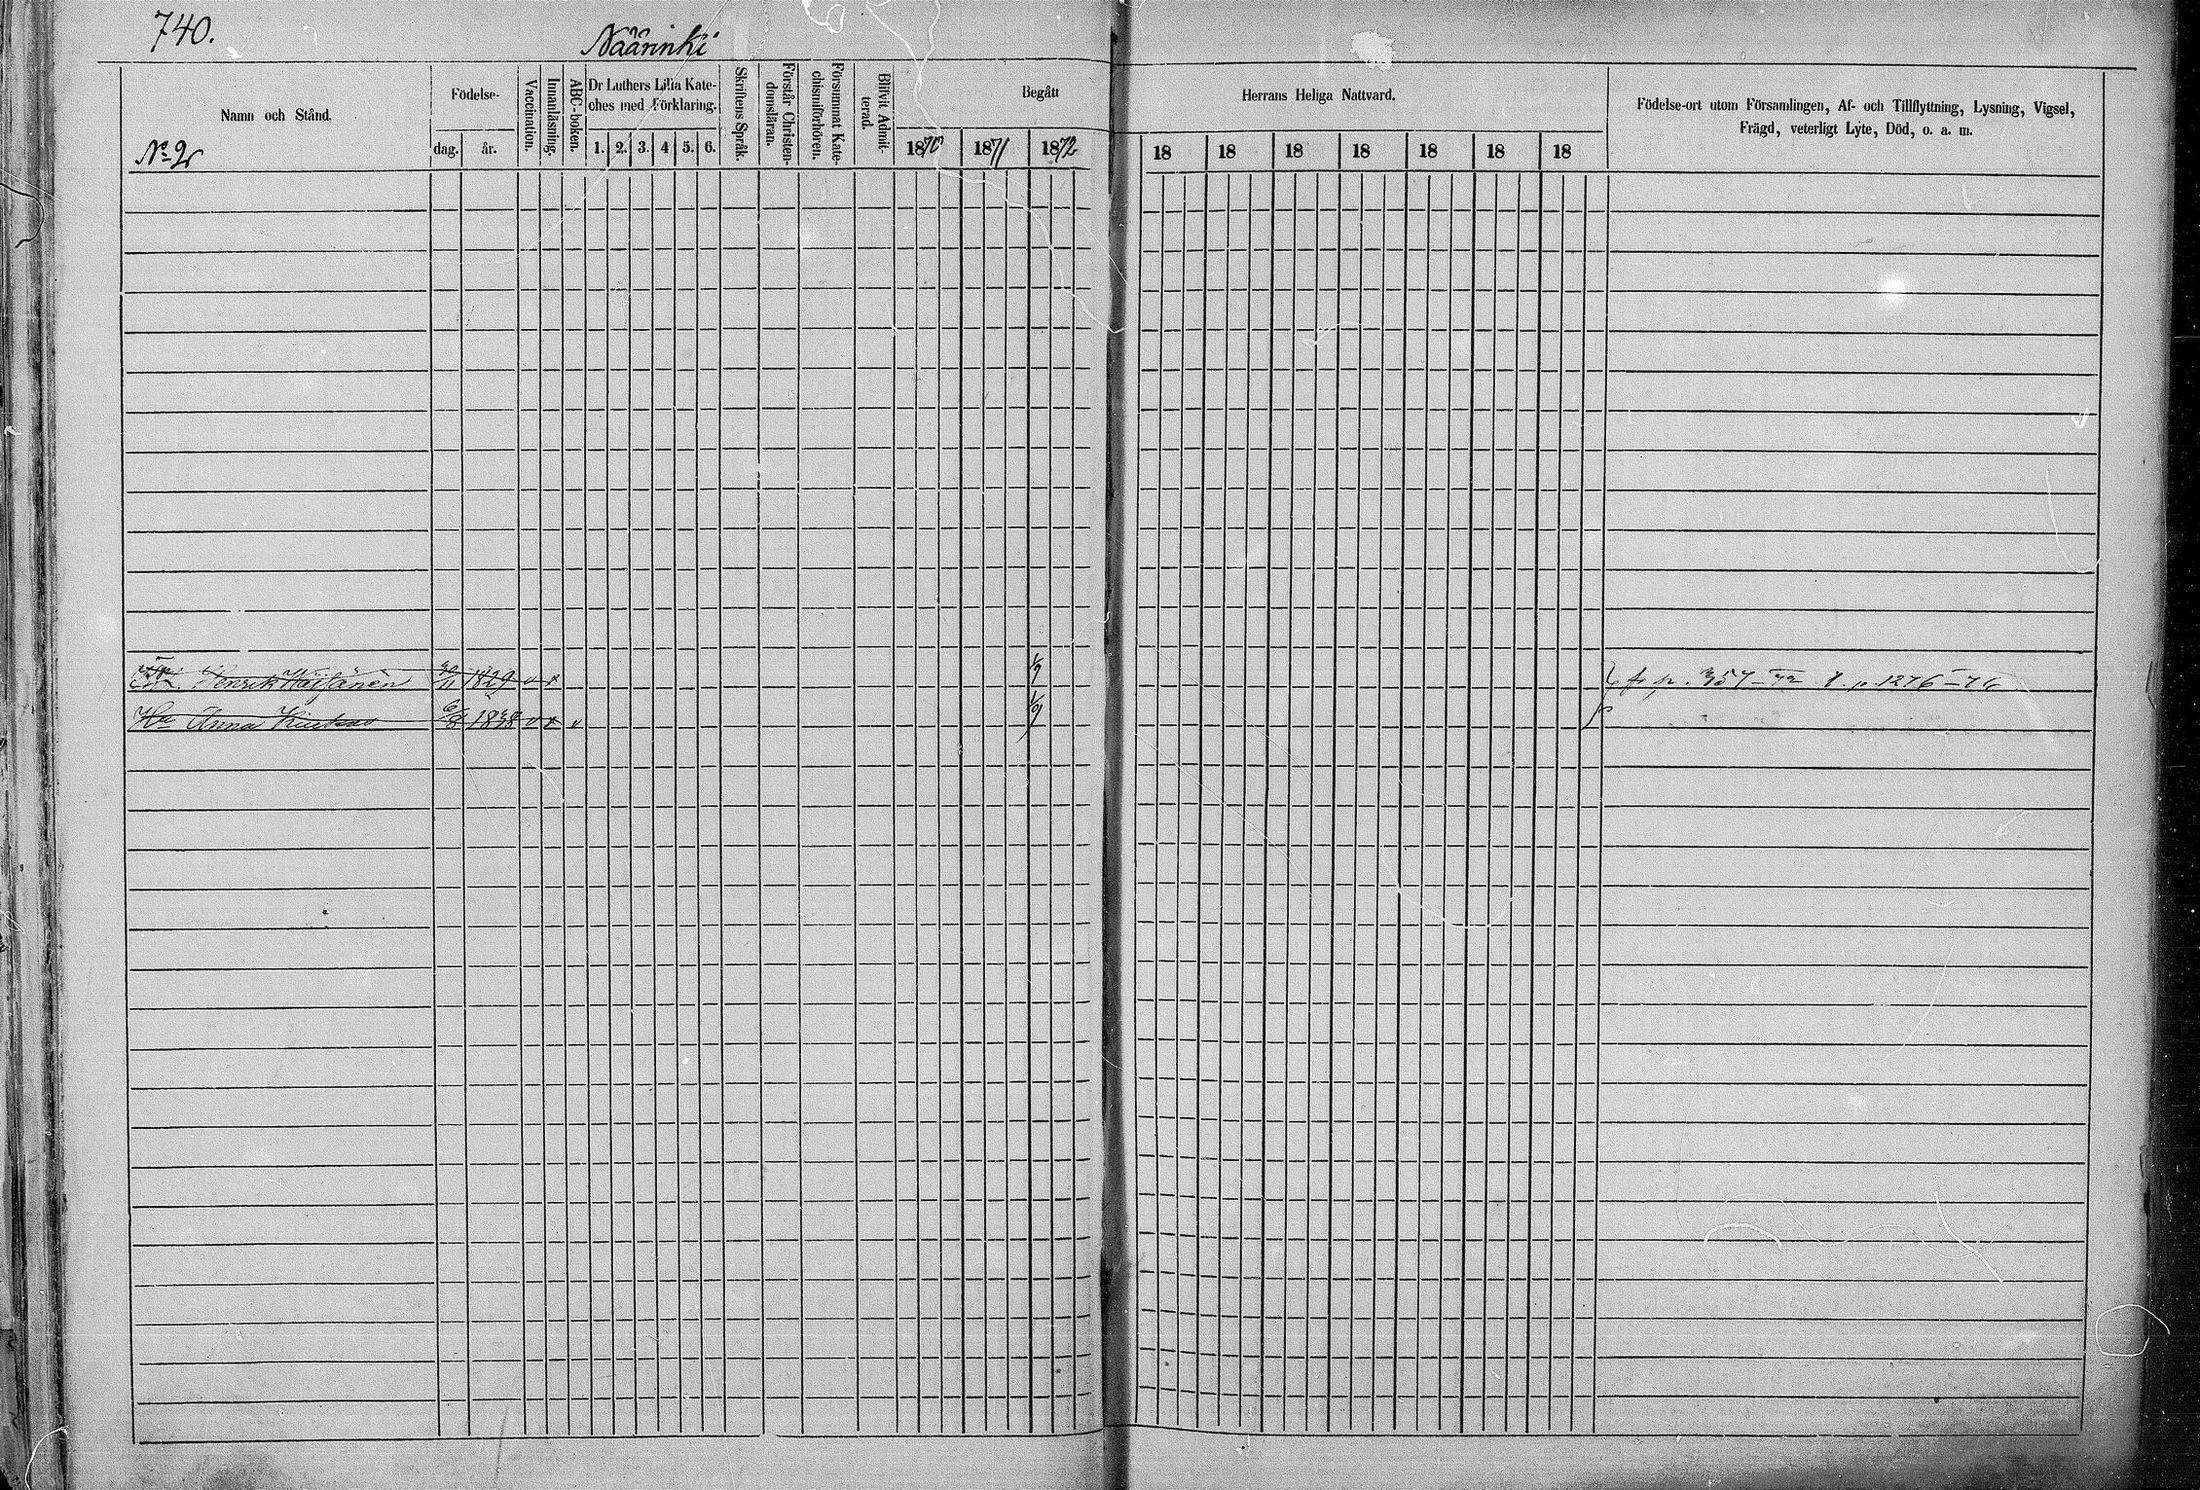 740.
Näärinki
Namn och Stånd.
Födelse-
dag.
år.
Vaccination.
Innanläsning.
ABC-boken.
Dr Luthers Lilla Kate-
ches med Förklaring.
1. 2. 3. 4 5. 6.
Skriftens Språk.
Förstår Christen-
domsläran.
Försummat Kate-
chismiförhören.
Blifvit Admit-
terad.
Begått
1870 1871 1872
Herrans Heliga Nattvard.
18 18 18 18 18 18 18
Födelse-ort utom Församlingen, Af- och Tillflyttning, Lysning, Vigsel,
Frägd, veterligt Lyte, Död, o. a. m.
No 2
Henrik Häifänen 30/11 1829 v x 1/9 fr p. 357-72 p. 1276-76
Hu Anna 6/8 1838 v x v 1/9